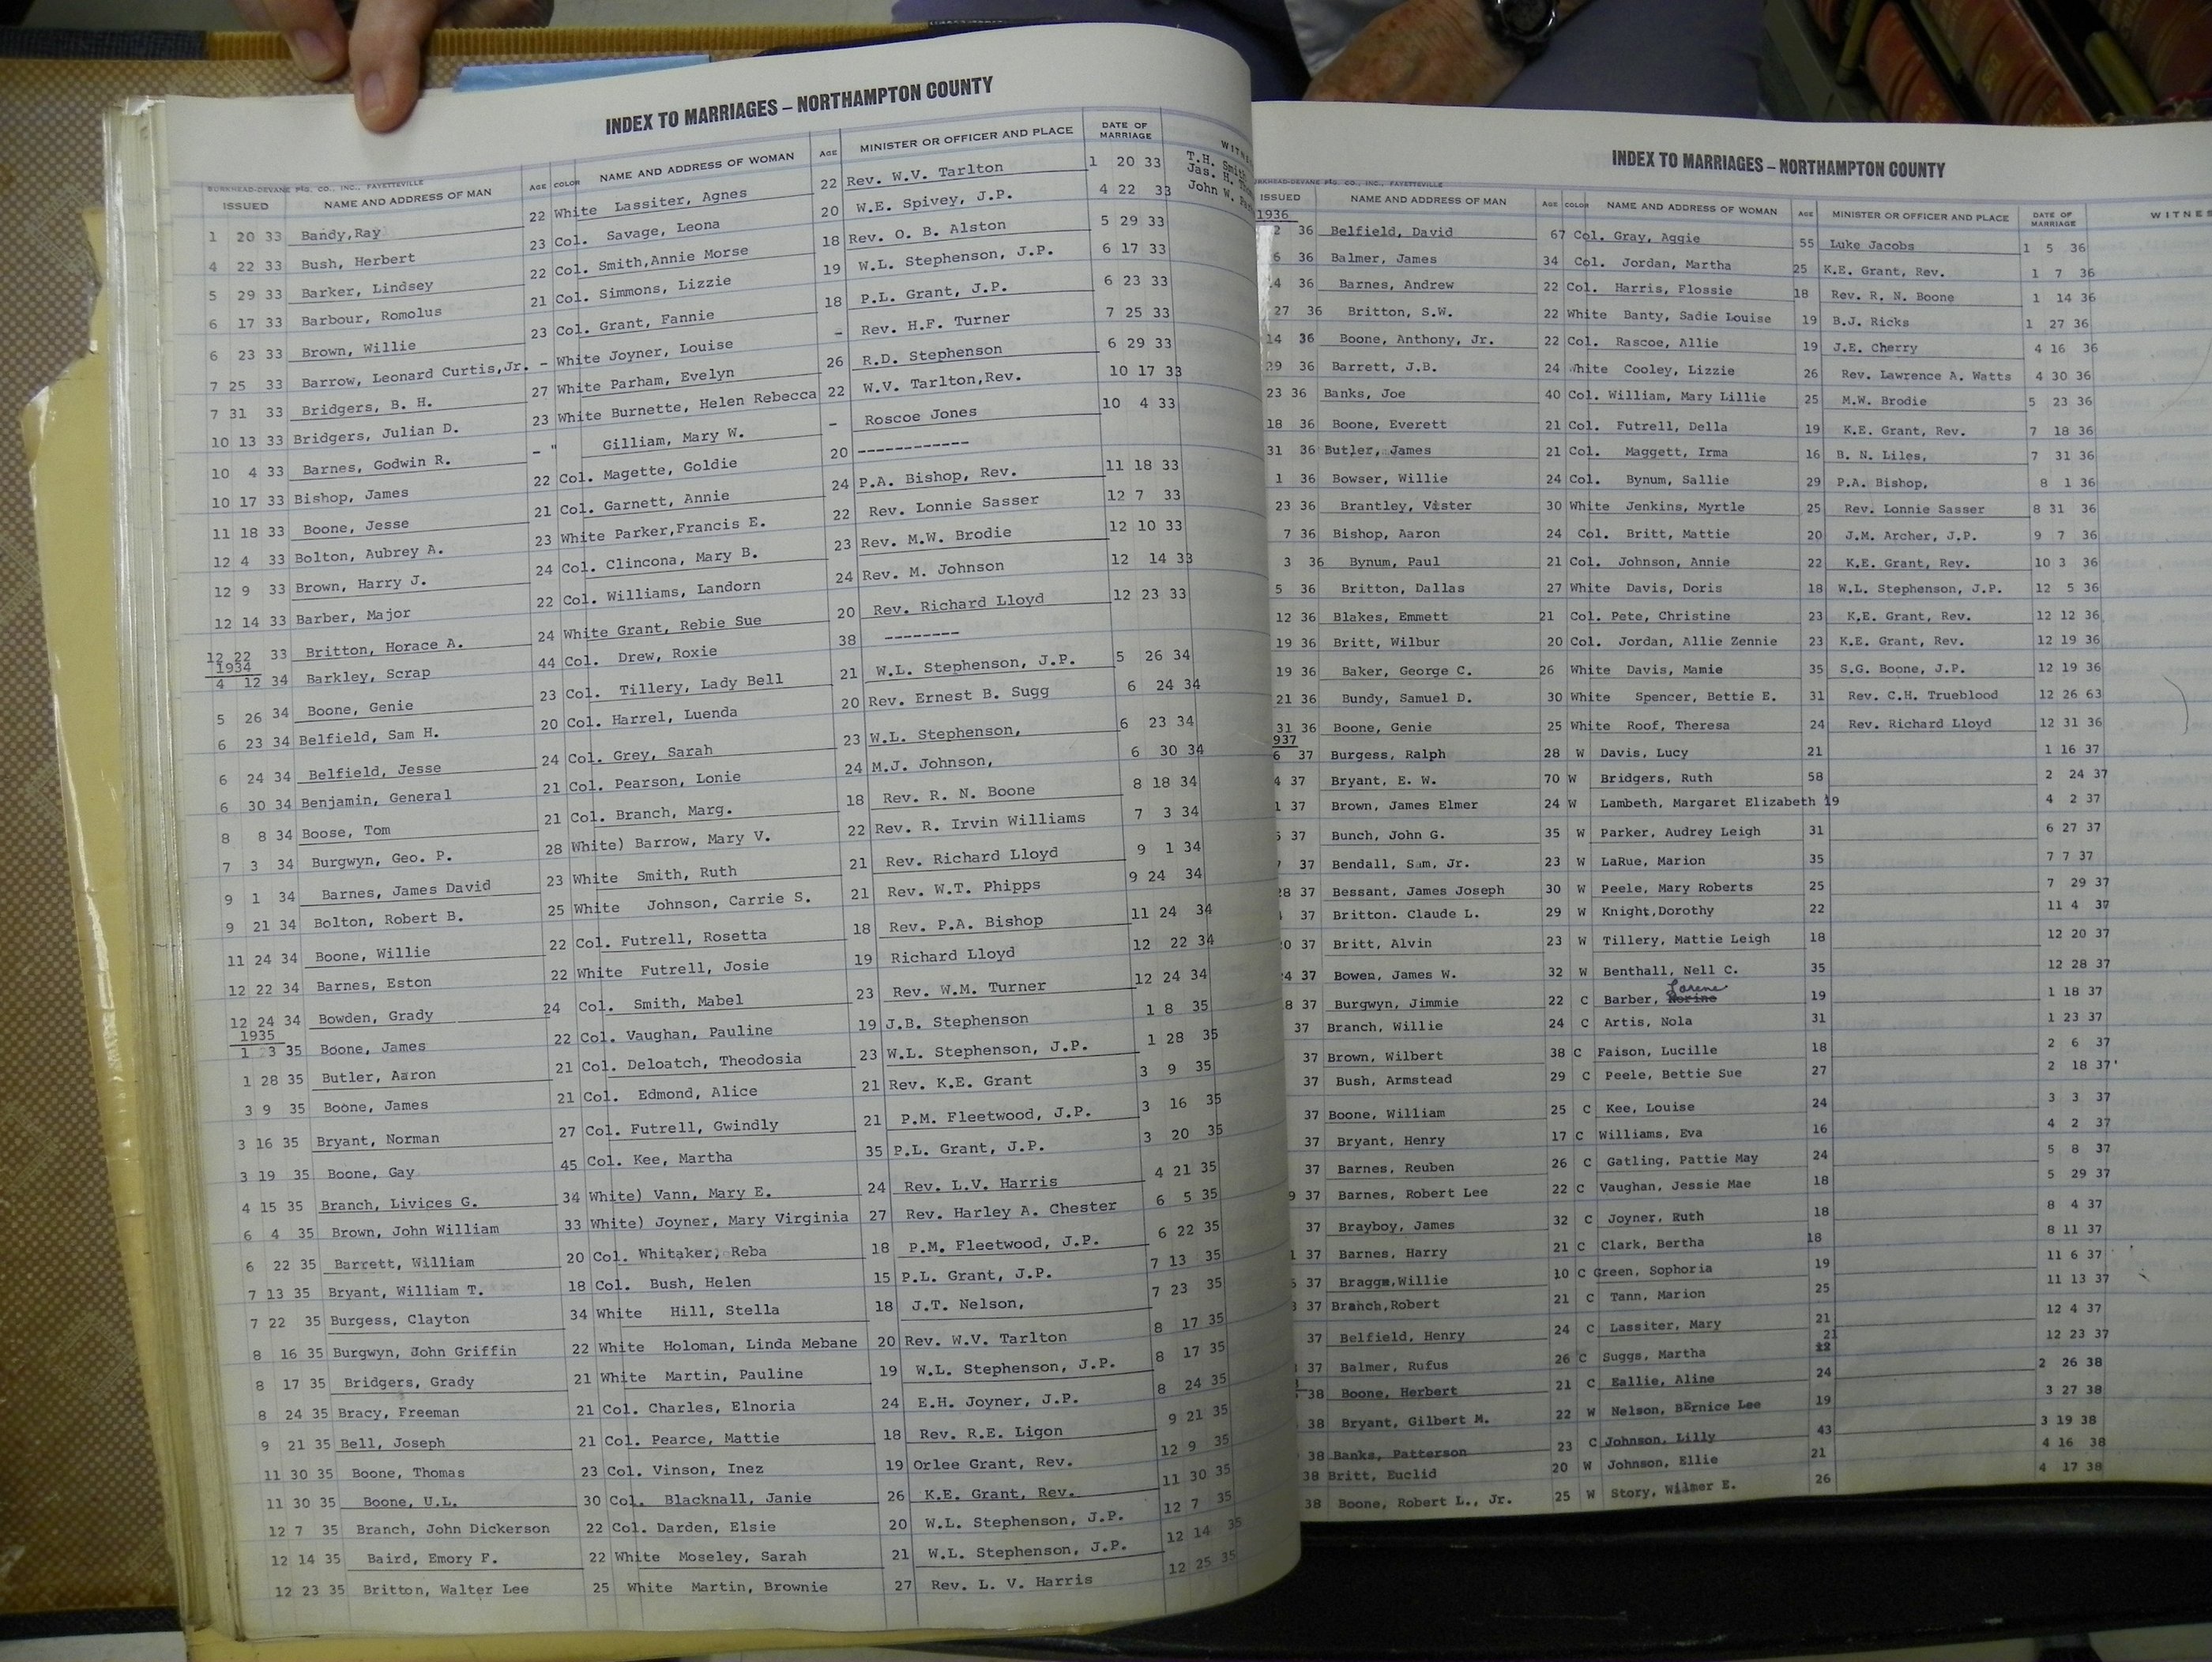 INDEX TO MARRIAGES – NORTHAMPTON COUNTY
BURKHEAD-DEVANE P'G. CO., INC., FAYETTEVILLE
ISSUED NAME AND ADDRESS OF MAN AGE COLOR NAME AND ADDRESS OF WOMAN AGE MINISTER OR OFFICER AND PLACE DATE OF MARRIAGE
1 20 33 Bandy,Ray 22 White Lassiter, Agnes 22 Rev. W.V. Tarlton 1 20 33 T.H. Smith
4 22 33 Bush, Herbert 23 Col. Savage, Leona 20 W.E. Spivey, J.P. 4 22 33 John W.
5 29 33 Barker, Lindsey 22 Col. Smith,Annie Morse 18 Rev. O. B. Alston 5 29 33
6 17 33 Barbour, Romolus 21 Col. Simmons, Lizzie 19 W.L. Stephenson, J.P. 6 17 33
6 23 33 Brown, Willie 23 Col. Grant, Fannie 18 P.L. Grant, J.P. 6 23 33
7 25 33 Barrow, Leonard Curtis,Jr. - White Joyner, Louise - Rev. H.F. Turner 7 25 33
7 31 33 Bridgers, B. H. 27 White Parham, Evelyn 26 R.D. Stephenson 6 29 33
10 13 33 Bridgers, Julian D. 23 White Burnette, Helen Rebecca 22 W.V. Tarlton,Rev. 10 17 33
10 4 33 Barnes, Godwin R. - " Gilliam, Mary W. - Roscoe Jones 10 4 33
10 17 33 Bishop, James 22 Col. Magette, Goldie 20 -----------
11 18 33 Boone, Jesse 21 Col. Garnett, Annie 24 P.A. Bishop, Rev. 11 18 33
12 4 33 Bolton, Aubrey A. 23 White Parker,Francis E. 22 Rev. Lonnie Sasser 12 7 33
12 9 33 Brown, Harry J. 24 Col. Clincona, Mary B. 23 Rev. M.W. Brodie 12 10 33
12 14 33 Barber, Major 22 Col. Williams, Landorn 24 Rev. M. Johnson 12 14 33
12 22 33 Britton, Horace A. 24 White Grant, Rebie Sue 20 Rev. Richard Lloyd 12 23 33
1934
4 12 34 Barkley, Scrap 44 Col. Drew, Roxie 38 --------
5 26 34 Boone, Genie 23 Col. Tillery, Lady Bell 21 W.L. Stephenson, J.P. 5 26 34
6 23 34 Belfield, Sam H. 20 Col. Harrel, Luenda 20 Rev. Ernest B. Sugg 6 24 34
6 24 34 Belfield, Jesse 24 Col. Grey, Sarah 23 W.L. Stephenson, 6 23 34
6 30 34 Benjamin, General 21 Col. Pearson, Lonie 24 M.J. Johnson, 6 30 34
8 8 34 Boose, Tom 21 Col. Branch, Marg. 18 Rev. R. N. Boone 8 18 34
7 3 34 Burgwyn, Geo. P. 28 White) Barrow, Mary V. 22 Rev. R. Irvin Williams 7 3 34
9 1 34 Barnes, James David 23 White Smith, Ruth 21 Rev. Richard Lloyd 9 1 34
9 21 34 Bolton, Robert B. 25 White Johnson, Carrie S. 21 Rev. W.T. Phipps 9 24 34
11 24 34 Boone, Willie 22 Col. Futrell, Rosetta 18 Rev. P.A. Bishop 11 24 34
12 22 34 Barnes, Eston 22 White Futrell, Josie 19 Richard Lloyd 12 22 34
12 24 34 Bowden, Grady 24 Col. Smith, Mabel 23 Rev. W.M. Turner 12 24 34
1935
1 3 35 Boone, James 22 Col. Vaughan, Pauline 19 J.B. Stephenson 1 8 35
1 28 35 Butler, Aaron 21 Col. Deloatch, Theodosia 23 W.L. Stephenson, J.P. 1 28 35
3 9 35 Boone, James 21 Col. Edmond, Alice 21 Rev. K.E. Grant 3 9 35
3 16 35 Bryant, Norman 27 Col. Futrell, Gwindly 21 P.M. Fleetwood, J.P. 3 16 35
3 19 35 Boone, Gay 45 Col. Kee, Martha 35 P.L. Grant, J.P. 3 20 35
4 15 35 Branch, Livices G. 34 White) Vann, Mary E. 24 Rev. L.V. Harris 4 21 35
6 4 35 Brown, John William 33 White) Joyner, Mary Virginia 27 Rev. Harley A. Chester 6 5 35
6 22 35 Barrett, William 20 Col. Whitaker, Reba 18 P.M. Fleetwood, J.P. 6 22 35
7 13 35 Bryant, William T. 18 Col. Bush, Helen 15 P.L. Grant, J.P. 7 13 35
7 22 35 Burgess, Clayton 34 White Hill, Stella 18 J.T. Nelson, 7 23 35
8 16 35 Burgwyn, John Griffin 22 White Holoman, Linda Mebane 20 Rev. W.V. Tarlton 8 17 35
8 17 35 Bridgers, Grady 21 White Martin, Pauline 19 W.L. Stephenson, J.P. 8 17 35
8 24 35 Bracy, Freeman 21 Col. Charles, Elnoria 24 E.H. Joyner, J.P. 8 24 35
9 21 35 Bell, Joseph 21 Col. Pearce, Mattie 18 Rev. R.E. Ligon 9 21 35
11 30 35 Boone, Thomas 23 Col. Vinson, Inez 19 Orlee Grant, Rev. 12 9 35
11 30 35 Boone, U.L. 30 Col. Blacknall, Janie 26 K.E. Grant, Rev. 11 30 35
12 7 35 Branch, John Dickerson 22 Col. Darden, Elsie 20 W.L. Stephenson, J.P. 12 7 35
12 14 35 Baird, Emory F. 22 White Moseley, Sarah 21 W.L. Stephenson, J.P. 12 14 35
12 23 35 Britton, Walter Lee 25 White Martin, Brownie 27 Rev. L. V. Harris 12 25 35
INDEX TO MARRIAGES – NORTHAMPTON COUNTY
ISSUED NAME AND ADDRESS OF MAN AGE COLOR NAME AND ADDRESS OF WOMAN AGE MINISTER OR OFFICER AND PLACE DATE OF MARRIAGE
1936
2 36 Belfield, David 67 Col. Gray, Aggie 55 Luke Jacobs 1 5 36
6 36 Balmer, James 34 Col. Jordan, Martha 25 K.E. Grant, Rev. 1 7 36
4 36 Barnes, Andrew 22 Col. Harris, Flossie 18 Rev. R. N. Boone 1 14 36
27 36 Britton, S.W. 22 White Banty, Sadie Louise 19 B.J. Ricks 1 27 36
14 36 Boone, Anthony, Jr. 22 Col. Rascoe, Allie 19 J.E. Cherry 4 16 36
29 36 Barrett, J.B. 24 White Cooley, Lizzie 26 Rev. Lawrence A. Watts 4 30 36
23 36 Banks, Joe 40 Col. William, Mary Lillie 25 M.W. Brodie 5 23 36
18 36 Boone, Everett 21 Col. Futrell, Della 19 K.E. Grant, Rev. 7 18 36
31 36 Butler, James 21 Col. Maggett, Irma 16 B. N. Liles, 7 31 36
1 36 Bowser, Willie 24 Col. Bynum, Sallie 29 P.A. Bishop, 8 1 36
23 36 Brantley, Vister 30 White Jenkins, Myrtle 25 Rev. Lonnie Sasser 8 31 36
7 36 Bishop, Aaron 24 Col. Britt, Mattie 20 J.M. Archer, J.P. 9 7 36
3 36 Bynum, Paul 21 Col. Johnson, Annie 22 K.E. Grant, Rev. 10 3 36
5 36 Britton, Dallas 27 White Davis, Doris 18 W.L. Stephenson, J.P. 12 5 36
12 36 Blakes, Emmett 21 Col. Pete, Christine 23 K.E. Grant, Rev. 12 12 36
19 36 Britt, Wilbur 20 Col. Jordan, Allie Zennie 23 K.E. Grant, Rev. 12 19 36
19 36 Baker, George C. 26 White Davis, Mamie 35 S.G. Boone, J.P. 12 19 36
21 36 Bundy, Samuel D. 30 White Spencer, Bettie E. 31 Rev. C.H. Trueblood 12 26 63
31 36 Boone, Genie 25 White Roof, Theresa 24 Rev. Richard Lloyd 12 31 36
937
6 37 Burgess, Ralph 28 W Davis, Lucy 21 1 16 37
4 37 Bryant, E. W. 70 W Bridgers, Ruth 58 2 24 37
1 37 Brown, James Elmer 24 W Lambeth, Margaret Elizabeth 19 4 2 37
37 Bunch, John G. 35 W Parker, Audrey Leigh 31 6 27 37
37 Bendall, Sam, Jr. 23 W LaRue, Marion 35 7 7 37
28 37 Bessant, James Joseph 30 W Peele, Mary Roberts 25 7 29 37
37 Britton. Claude L. 29 W Knight,Dorothy 22 11 4 37
0 37 Britt, Alvin 23 W Tillery, Mattie Leigh 18 12 20 37
4 37 Bowen, James W. 32 W Benthall, Nell C. 35 12 28 37
8 37 Burgwyn, Jimmie 22 C Barber, Norine Lorene 19 1 18 37
37 Branch, Willie 24 C Artis, Nola 31 1 23 37
37 Brown, Wilbert 38 C Faison, Lucille 18 2 6 37
37 Bush, Armstead 29 C Peele, Bettie Sue 27 2 18 37
37 Boone, William 25 C Kee, Louise 24 3 3 37
37 Bryant, Henry 17 C Williams, Eva 16 4 2 37
37 Barnes, Reuben 26 C Gatling, Pattie May 24 5 8 37
9 37 Barnes, Robert Lee 22 C Vaughan, Jessie Mae 18 5 29 37
37 Brayboy, James 32 C Joyner, Ruth 18 8 4 37
1 37 Barnes, Harry 21 C Clark, Bertha 18 8 11 37
37 Braggs,Willie 10 C Green, Sophoria 19 11 6 37
37 Branch,Robert 21 C Tann, Marion 25 11 13 37
37 Belfield, Henry 24 C Lassiter, Mary 21 12 4 37
37 Balmer, Rufus 26 C Suggs, Martha 21 12 23 37
38 Boone, Herbert 21 C Eallie, Aline 24 2 26 38
38 Bryant, Gilbert M. 22 W Nelson, BErnice Lee 19 3 27 38
38 Banks, Patterson 23 C Johnson, Lilly 43 3 19 38
38 Britt, Euclid 20 W Johnson, Ellie 21 4 16 38
38 Boone, Robert L., Jr. 25 W Story, Wilmer E. 26 4 17 38